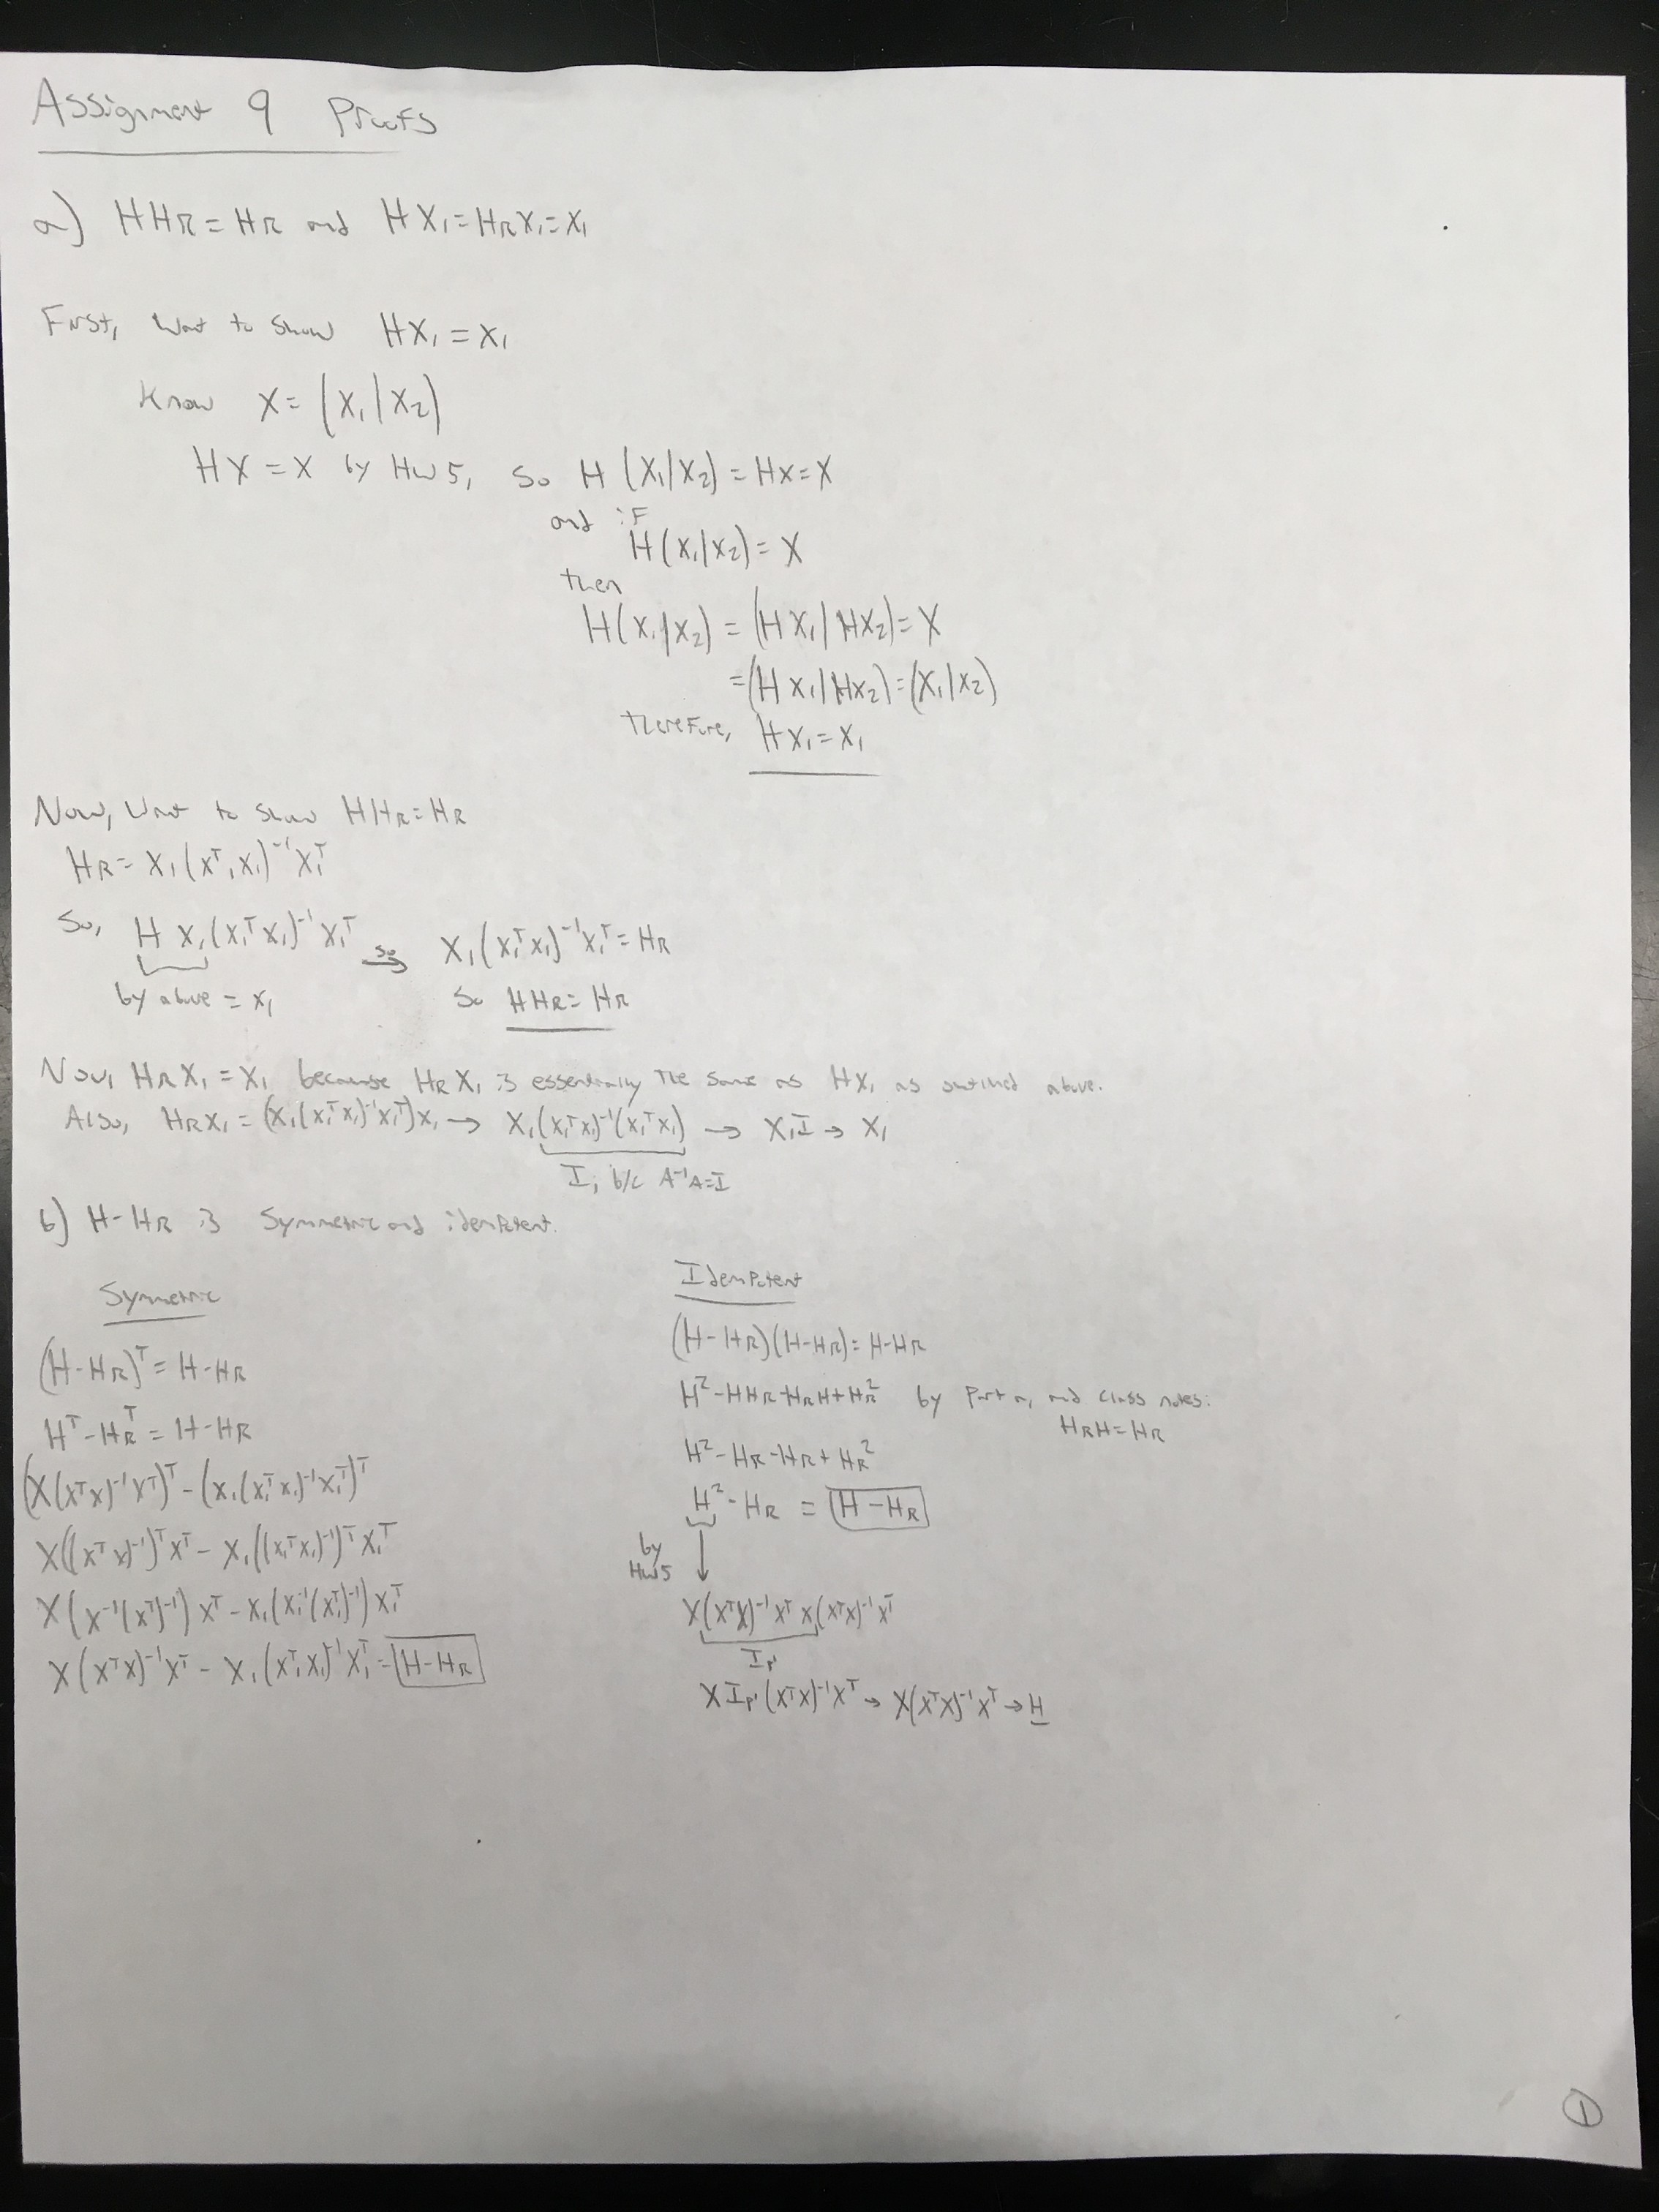 Assignment 9 Proofs
a) HH_R = H_R and HX₁ = H_R X₁ = X₁
First, Want to show HX₁ = X₁
Know X = (X₁|X₂)
HX = X by HW5, so H(X₁|X₂) = HX = X
and if
H(X₁|X₂) = X
then
H(X₁|X₂) = (HX₁|HX₂) = X
= (HX₁|HX₂) = (X₁|X₂)
therefore, HX₁ = X₁
Now, Want to show HH_R = H_R
H_R = X₁(X₁ᵀX₁)⁻¹X₁ᵀ
So, HX₁(X₁ᵀX₁)⁻¹X₁ᵀ so → X₁(X₁ᵀX₁)⁻¹X₁ᵀ = H_R
by above = X₁ so HH_R = H_R
Now, H_R X₁ = X₁ because H_R X₁ is essentially the same as HX₁ as outlined above.
Also, H_R X₁ = (X₁(X₁ᵀX₁)⁻¹X₁ᵀ)X₁ → X₁(X₁ᵀX₁)⁻¹(X₁ᵀX₁) → X₁I → X₁
I, b/c A⁻¹A=I
b) H-H_R is Symmetric and idempotent.
Symmetric
(H-H_R)ᵀ = H-H_R
Hᵀ-H_Rᵀ = H-H_R
(X(XᵀX)⁻¹Xᵀ)ᵀ - (X₁(X₁ᵀX₁)⁻¹X₁ᵀ)ᵀ
X((XᵀX)⁻¹)ᵀXᵀ - X₁((X₁ᵀX₁)⁻¹)ᵀX₁ᵀ
X(X⁻¹(Xᵀ)⁻¹)Xᵀ - X₁(X₁⁻¹(X₁ᵀ)⁻¹)X₁ᵀ
X(XᵀX)⁻¹Xᵀ - X₁(X₁ᵀX₁)⁻¹X₁ᵀ = H-H_R
Idempotent
(H-H_R)(H-H_R) = H-H_R
H²-HH_R-H_RH+H_R² by Part a, and class notes:
H_RH = H_R
H²-H_R-H_R+H_R²
H²-H_R = H-H_R
by
HW5
X(XᵀX)⁻¹XᵀX(XᵀX)⁻¹Xᵀ
I_p'
XI_p'(XᵀX)⁻¹Xᵀ → X(XᵀX)⁻¹Xᵀ → H
1